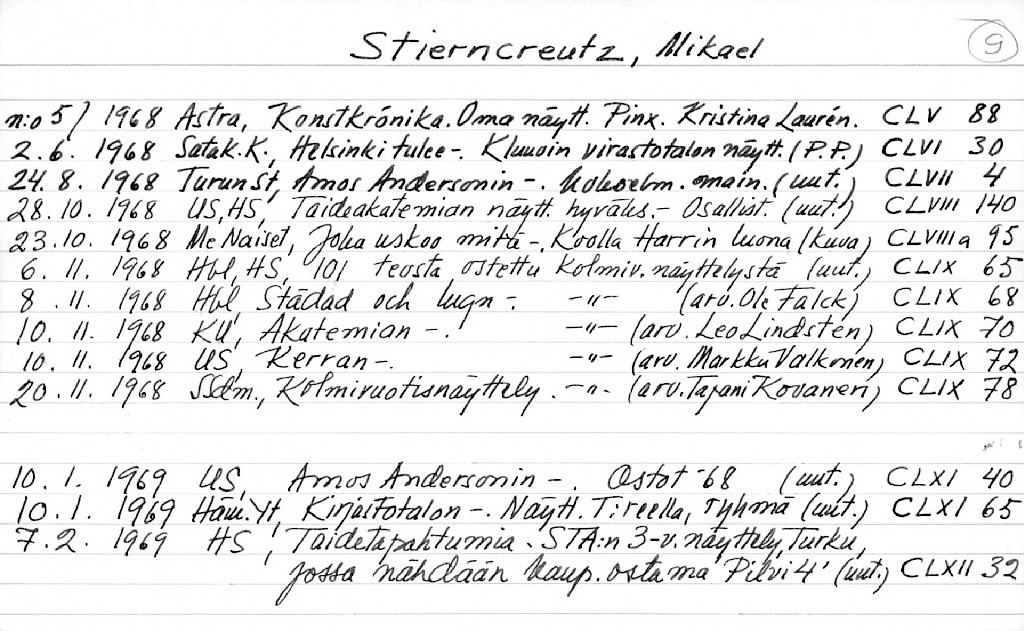 Stierncreutz, Mikael 9
n:o 5/ 1968 Astra, Konstkrönika. Oma näytt. Pinx. Kristina Laurén. CLV 88
2.6. 1968 Satak.K., Helsinki tulee-. Kluuvin virastotalon näytt. (P.P.) CLVI 30
24.8. 1968 TurunSt, Amos Andersonin -. kokoelm. omain. (uut.) CLVII 4
28.10. 1968 US, HS, Taideakatemian näytt. hyväks.- Osallist. (uut.) CLVIII 140
23.10. 1968 Me Naiset, Joka uskoo mitä-. Koolla Harrin luona (kuva) CLVIIIa 95
6. 11. 1968 Hbl, HS, 101 teosta ostettu Kolmiv.näyttelystä (uut.) CLIX 65
8 .11. 1968 Hbl, Städad och lugn-. -"- (arv. Ole Falck) CLIX 68
10. 11. 1968 KU, Akatemian -. -"- (arv. Leo Lindsten) CLIX 70
10. 11. 1968 US, Kerran-. -"- (arv. Markku Valkonen) CLIX 72
20. 11. 1968 SSdm., Kolmivuotisnäyttely. -"- (arv. Tapani Kovanen) CLIX 78
10. 1. 1969 US, Amos Andersonin -. Ostot -68 (uut.) CLXI 40
10.1. 1969 Häm.Yt, Kirjastotalon -. Näytt. T:reella, ryhmä (uut.) CLXI 65
7.2. 1969 HS, Taidetapahtumia. STA:n 3-v. näyttely, Turku,
jossa nähdään kaup. ostama 'Pilvi 4' (uut.) CLXII 32